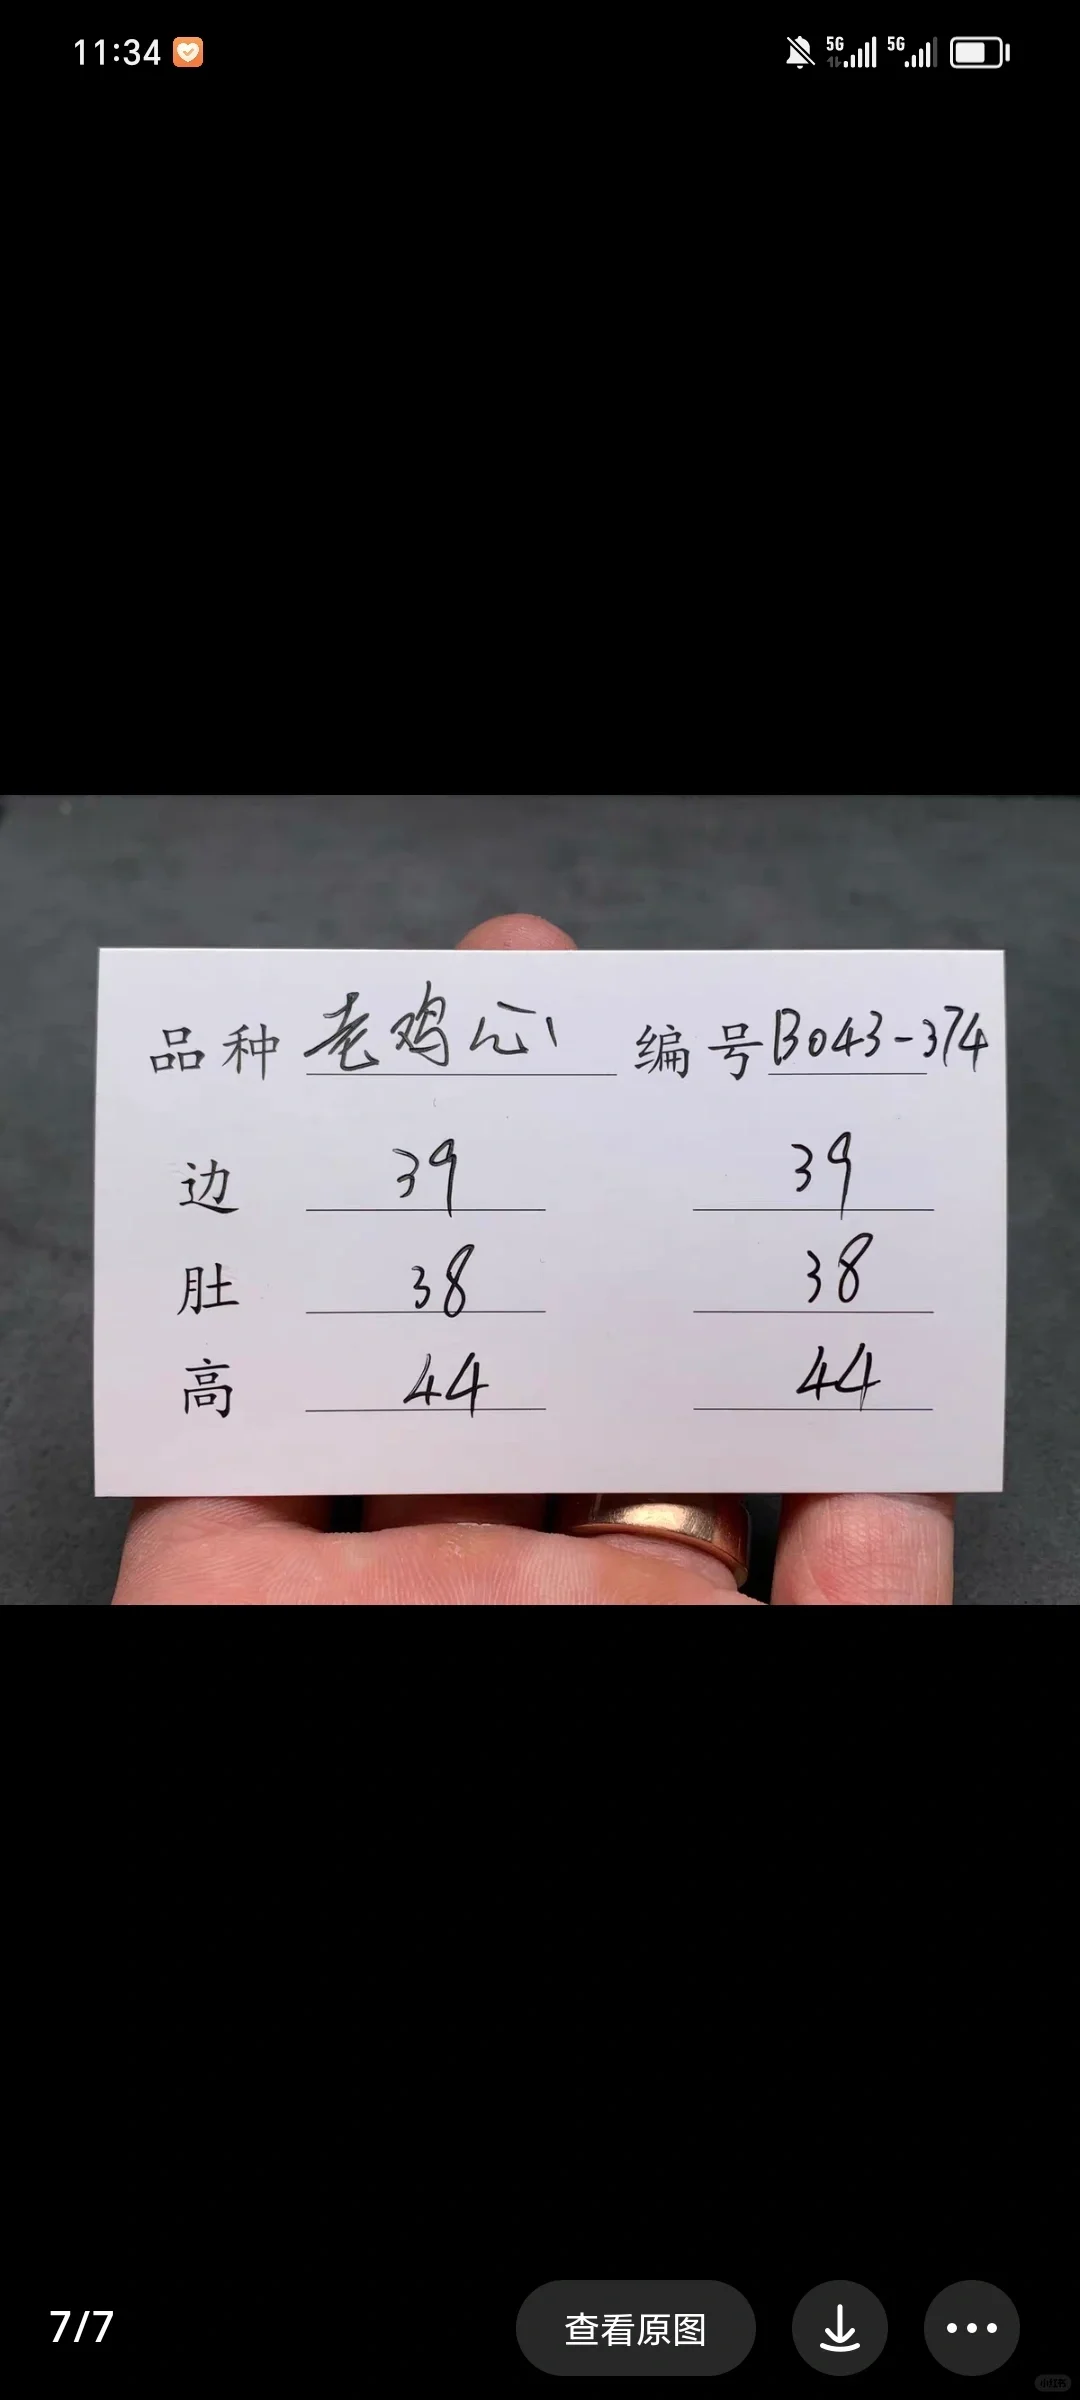 11:34
5G 5G
品种 老鸡心 编号 B043-374
边 39 39
肚 38 38
高 44 44
7/7 查看原图
小红书